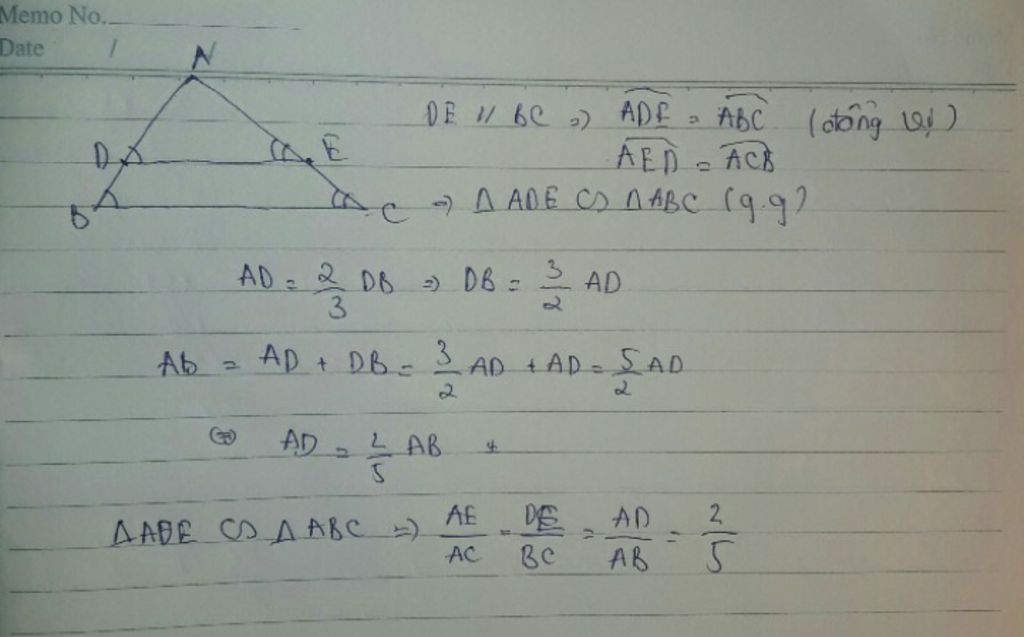 Memo No.
Date /
A
D E
B C
DE // BC => ADE = ABC (đồng vị)
AED = ACB
=> Δ ADE ∽ Δ ABC (g.g)
AD = 2/3 DB => DB = 3/2 AD
AB = AD + DB = 3/2 AD + AD = 5/2 AD
<=> AD = 2/5 AB
Δ ADE ∽ Δ ABC => AE/AC = DE/BC = AD/AB = 2/5